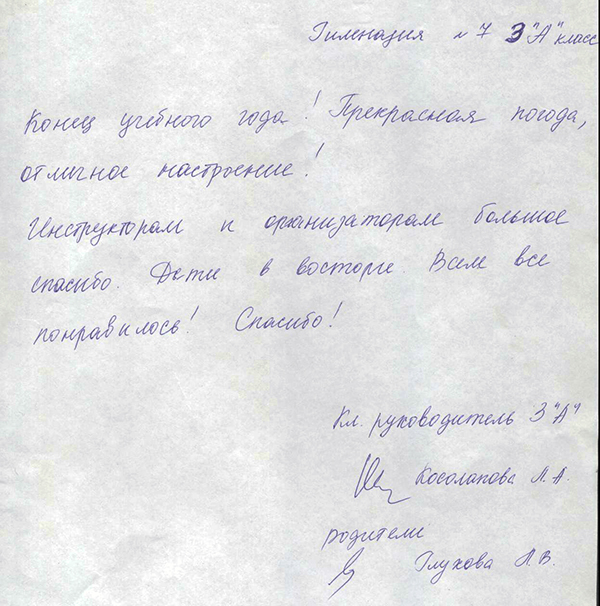 Гимназия №7 3"А" класс
Конец учебного года! Прекрасная погода,
отличное настроение!
Инструкторам и организаторам большое
спасибо. Дети в восторге. Всем все
понравилось! Спасибо!
Кл. руководитель 3"А"
Косолапова Л.А.
родители
Глухова Л.В.